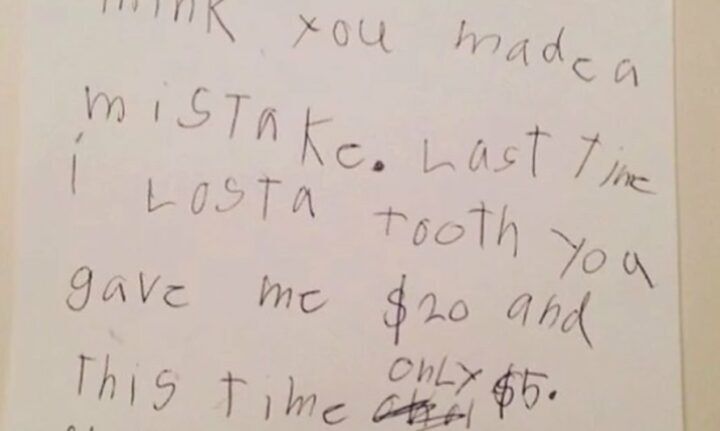 think you made a
mistake. Last time
i Lost a tooth you
gave me $20 and
This time only $5.